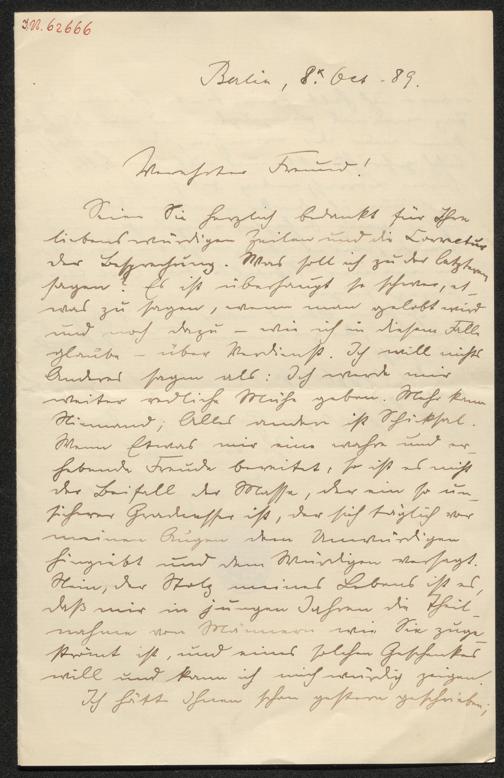 J.N. 62666
Berlin, 8t Oct. 89.
Verehrter Freund!
Seien Sie herzlich bedankt für Ihre
liebenswürdigen Zeilen und die Correctur
der Besprechung. Was soll ich zu der letzteren
sagen? Es ist überhaupt so schwer, et-
was zu sagen, wenn man gelobt wird
und noch dazu – wie ich in diesem Falle
glaube – über Verdienst. Ich will nichts
Anderes sagen als: Ich werde mir
weiter redliche Mühe geben. Mehr kann
Niemand; Alles andere ist Schicksal.
Wenn Etwas mir eine wahre und er-
hebende Freude bereitet, so ist es nicht
der Beifall der Masse, der ein so un-
sicherer Gradmesser ist, der sich täglich vor
meinen Augen dem Unwürdigen
hingiebt und dem Würdigen versagt.
Nein, der Stolz meines Lebens ist es,
daß mir in jungen Jahren die Theil-
nahme von Männern wie Sie zuge-
strömt ist, und eines solchen Geschenkes
will und kann ich mich würdig zeigen.
Ich hätte Ihnen schon gestern geschrieben;